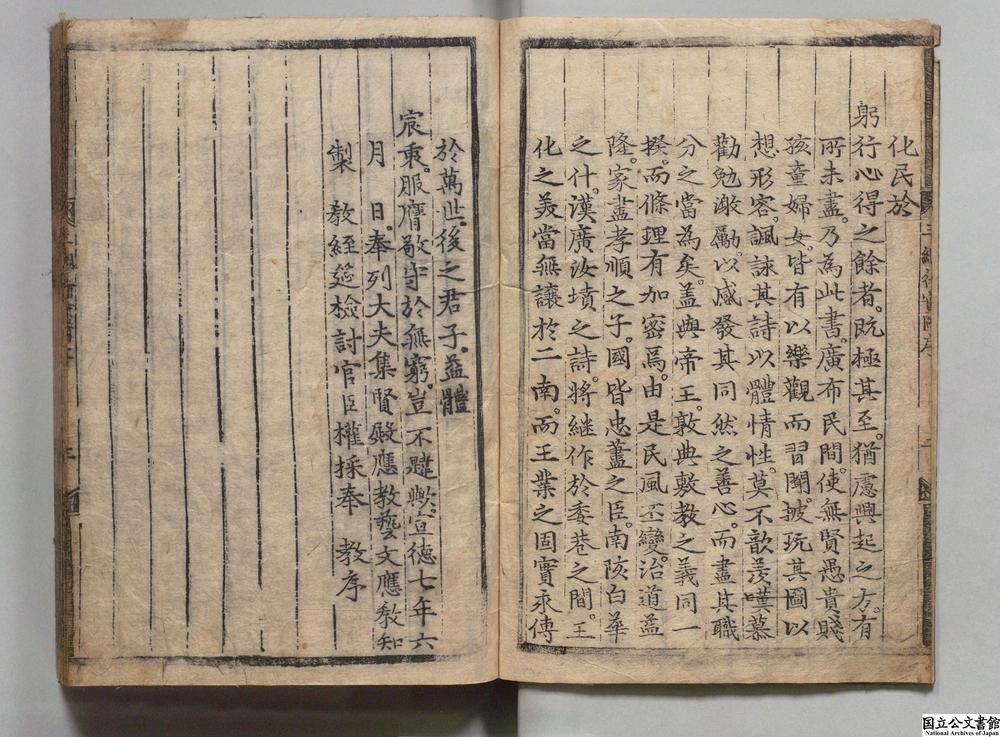 化民於
躬行心得之餘者。既極其至。猶慮興起之方。有
所未盡。乃為此書。廣布民間。使無賢愚貴賤
孩童婦女。皆有以樂觀而習聞。披玩其圖以
想形容。諷詠其詩以體情性。莫不歆羨嘆慕
勸勉激勵。以感發其同然之善心。而盡其職
分之當為矣。盖與帝王。敦典敷教之義同一
揆。而條理有加密焉。由是民風丕變。治道益
隆。家盡孝順之子。國皆忠藎之臣。南陔白華
之什。漢廣汝墳之詩。將継作於委巷之間。王
化之美當無讓於二南。而王業之固實永傳
於萬世。後之君子。益體
宸衷。服膺敬守於無窮。豈不韙歟。宣德七年六
月　日。奉列大夫集賢殿應教藝文應教知
製　教経筵檢討官臣權採奉　教序
三綱行實圖序
三
国立公文書館
National Archives of Japan